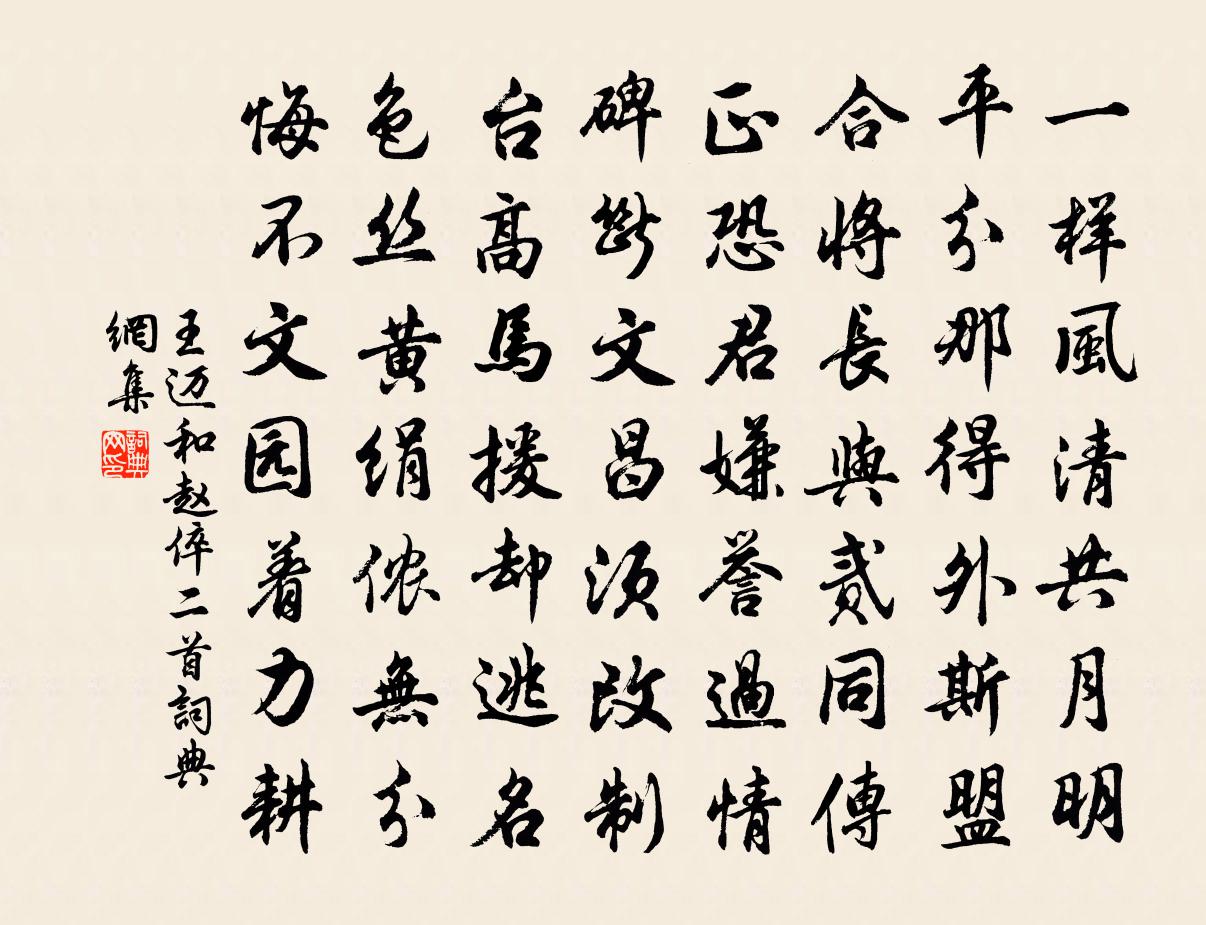 一样風清共月明
平分那得外斯盟
合將長與貳同傳
正恐君嫌誉過情
碑断文昌須改制
台高馬援却逃名
色丝黄绢侬無分
悔不文园着力耕
王迈和赵倅二首詞典
網集
詞典网印